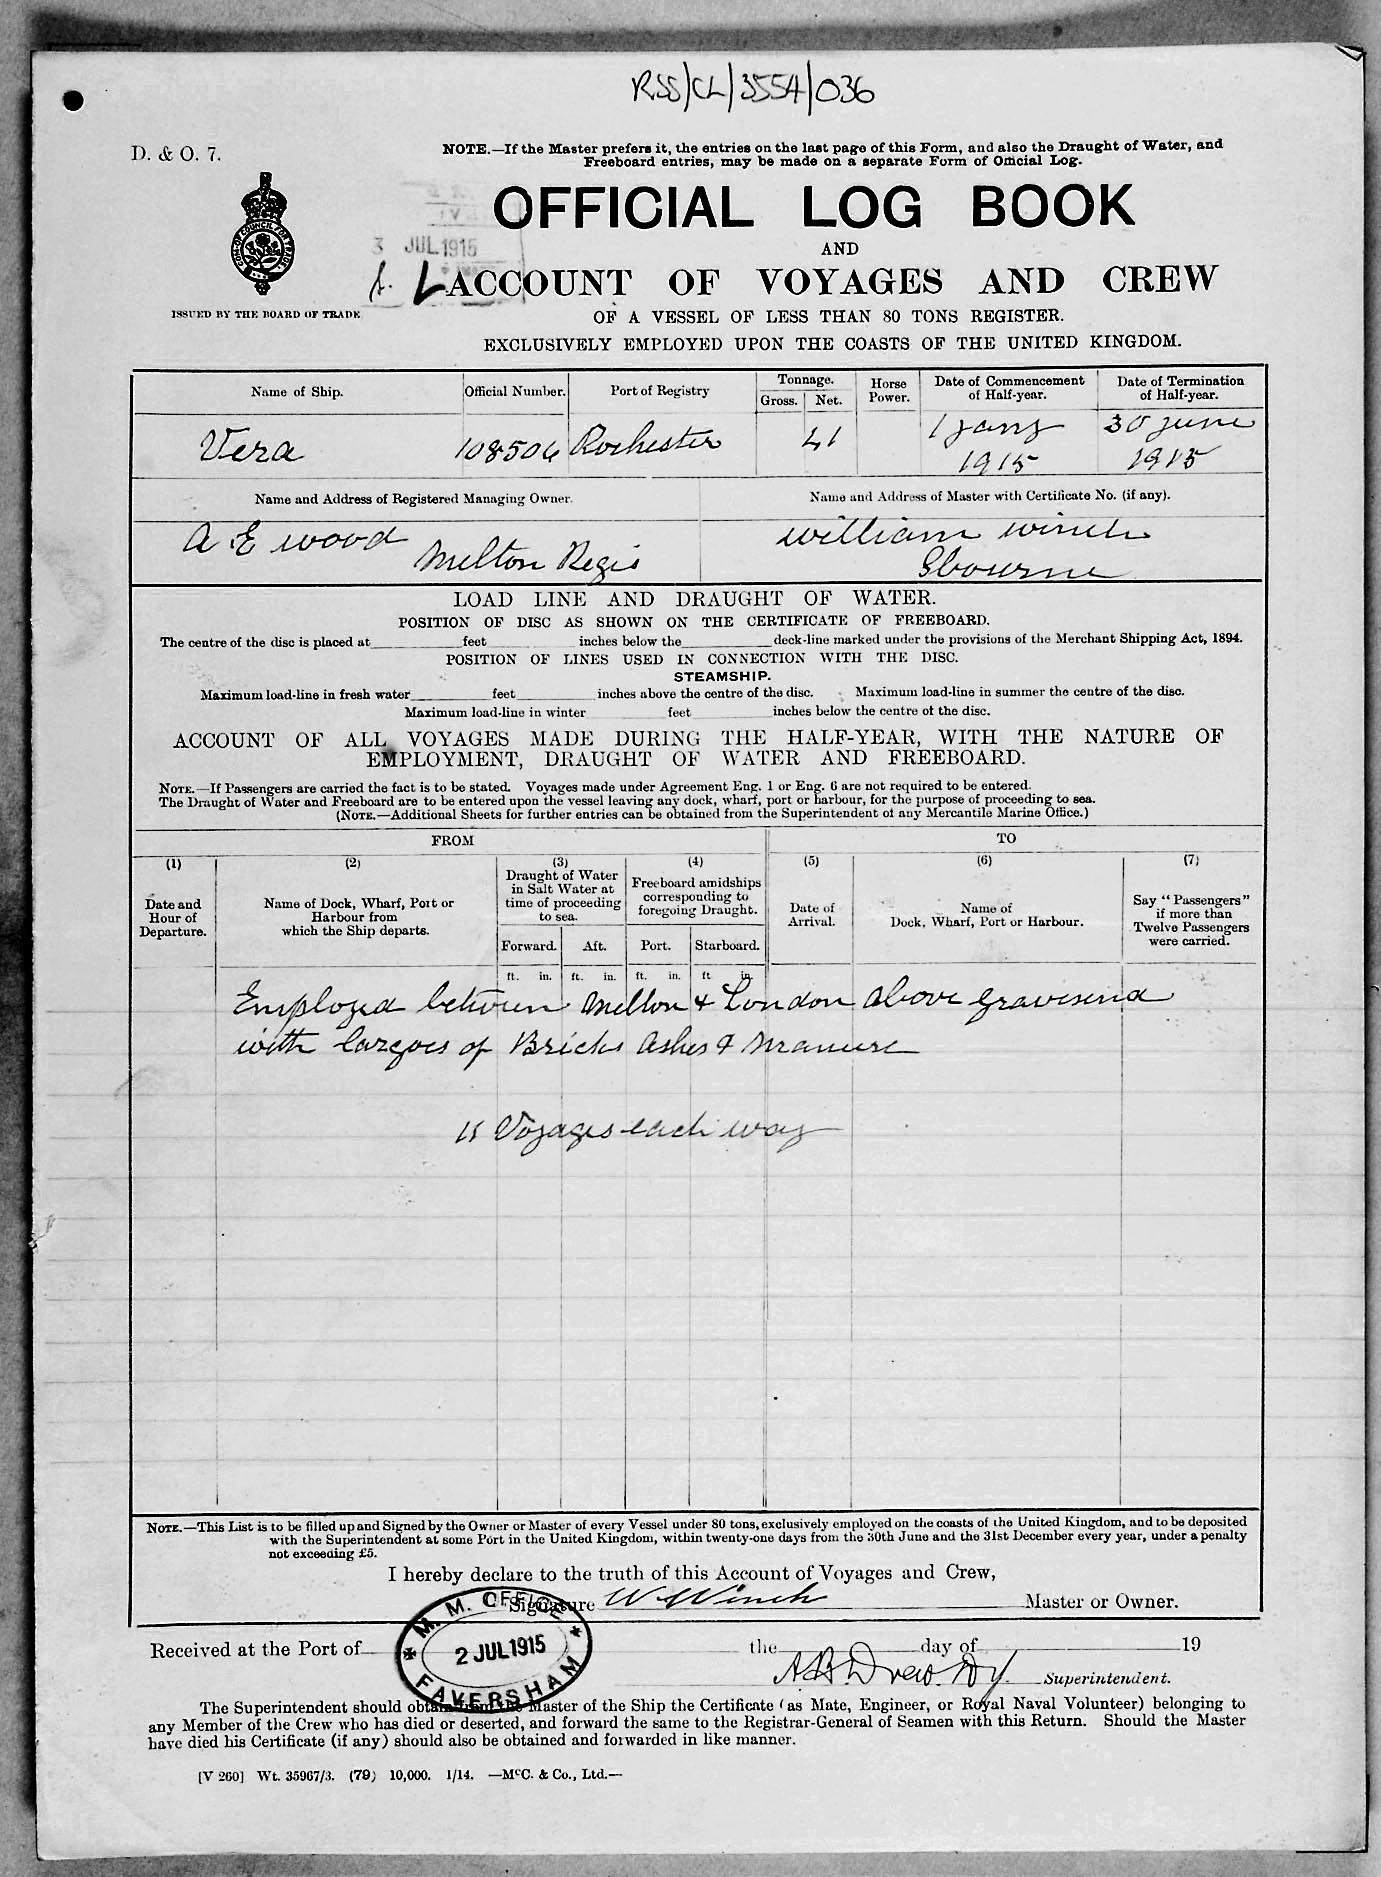 RSS/CL/3554/036
D. & O. 7.
NOTE.—If the Master prefers it, the entries on the last page of this Form, and also the Draught of Water, and
Freeboard entries, may be made on a separate Form of Official Log.
OFFICIAL LOG BOOK
AND
3 JUL 1915
ACCOUNT OF VOYAGES AND CREW
ISSUED BY THE BOARD OF TRADE
OF A VESSEL OF LESS THAN 80 TONS REGISTER.
EXCLUSIVELY EMPLOYED UPON THE COASTS OF THE UNITED KINGDOM.
Name of Ship. Official Number. Port of Registry Tonnage. Gross. Net. Horse Power. Date of Commencement of Half-year. Date of Termination of Half-year.
Vera 108506 Rochester 41 1 Jany 1915 30 June 1915
Name and Address of Registered Managing Owner. Name and Address of Master with Certificate No. (if any).
A E Wood Milton Regis William Winch Sbourne
LOAD LINE AND DRAUGHT OF WATER.
POSITION OF DISC AS SHOWN ON THE CERTIFICATE OF FREEBOARD.
The centre of the disc is placed at feet inches below the deck-line marked under the provisions of the Merchant Shipping Act, 1894.
POSITION OF LINES USED IN CONNECTION WITH THE DISC.
STEAMSHIP.
Maximum load-line in fresh water feet inches above the centre of the disc. Maximum load-line in summer the centre of the disc.
Maximum load-line in winter feet inches below the centre of the disc.
ACCOUNT OF ALL VOYAGES MADE DURING THE HALF-YEAR, WITH THE NATURE OF
EMPLOYMENT, DRAUGHT OF WATER AND FREEBOARD.
NOTE.—If Passengers are carried the fact is to be stated. Voyages made under Agreement Eng. 1 or Eng. 6 are not required to be entered.
The Draught of Water and Freeboard are to be entered upon the vessel leaving any dock, wharf, port or harbour, for the purpose of proceeding to sea.
(NOTE.—Additional Sheets for further entries can be obtained from the Superintendent of any Mercantile Marine Office.)
FROM TO
(1) (2) (3) (4) (5) (6) (7)
Date and Hour of Departure. Name of Dock, Wharf, Port or Harbour from which the Ship departs. Draught of Water in Salt Water at time of proceeding to sea. Freeboard amidships corresponding to foregoing Draught. Date of Arrival. Name of Dock, Wharf, Port or Harbour. Say "Passengers" if more than Twelve Passengers were carried.
Forward. Aft. Port. Starboard.
ft. in. ft. in. ft. in. ft in.
Employed between Milton & London above Gravesend
with Cargoes of Bricks Ashes & Manure
Voyages each way
NOTE.—This List is to be filled up and Signed by the Owner or Master of every Vessel under 80 tons, exclusively employed on the coasts of the United Kingdom, and to be deposited
with the Superintendent at some Port in the United Kingdom, within twenty-one days from the 30th June and the 31st December every year, under a penalty
not exceeding £5.
I hereby declare to the truth of this Account of Voyages and Crew,
Signature W Winch Master or Owner.
M. M. OFFICE 2 JUL 1915 FAVERSHAM
Received at the Port of the day of 19
A B Drew. Dy. Superintendent.
The Superintendent should obtain from the Master of the Ship the Certificate (as Mate, Engineer, or Royal Naval Volunteer) belonging to
any Member of the Crew who has died or deserted, and forward the same to the Registrar-General of Seamen with this Return. Should the Master
have died his Certificate (if any) should also be obtained and forwarded in like manner.
[V 260] Wt. 35967/3. (79) 10,000. 1/14. —McC. & Co., Ltd.—